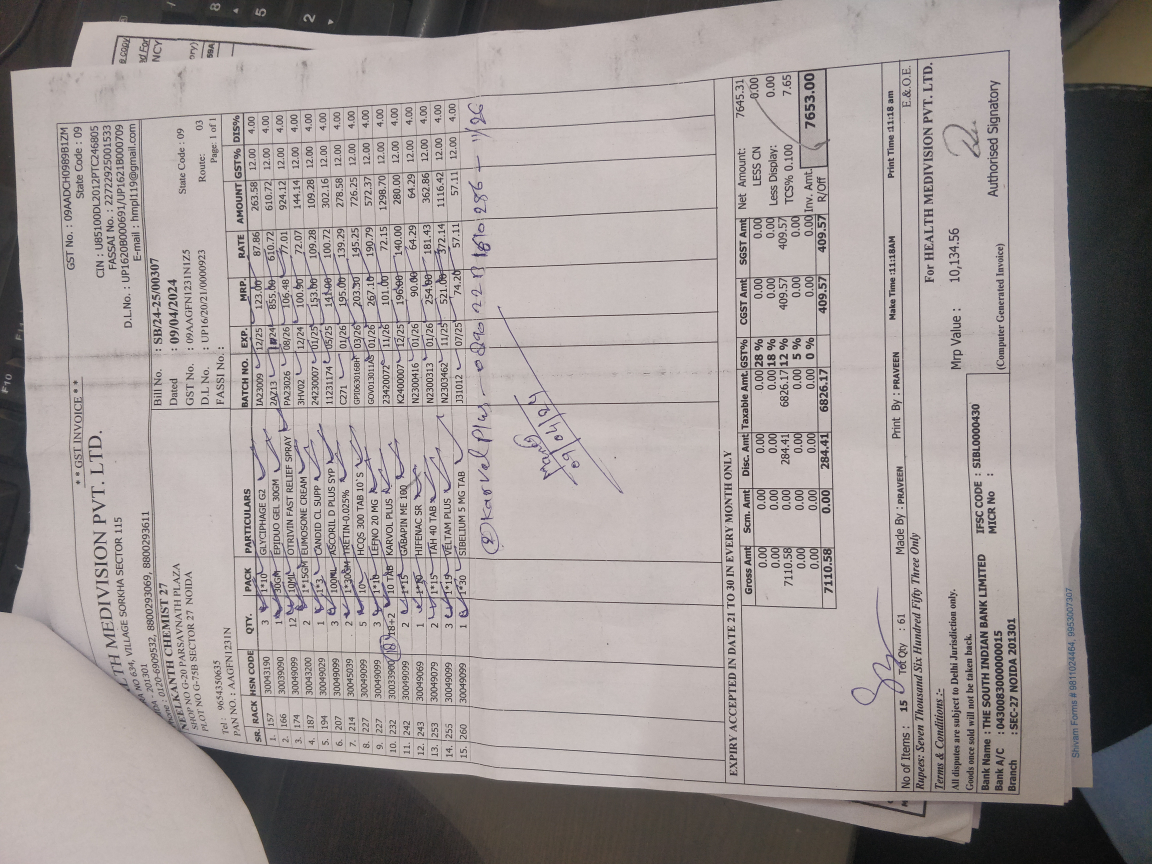 ** GST INVOICE **
GST No. : 09AADCH0989B1ZM
State Code : 09
LTH MEDIVISION PVT. LTD.
NO 634, VILLAGE SORKHA SECTOR 115
201301
0120-6909532, 8800293069, 8800293611
CIN : U85100DL2012PTC246805
FASSAI No. : 22722925001533
D.L.No. : UP16208000691/UP16218000709
E-mail : hmpl119@gmail.com
NEELKANTH CHEMIST 27
SHOP NO G-20 PARSAVNATH PLAZA
PLOT NO G-75B SECTOR 27 NOIDA
Tel : 9654350635
PAN NO. : AAGFN1231N
Bill No. : SB/24-25/00307
Dated : 09/04/2024
GST No. : 09AAGFN1231N1Z5 State Code : 09
D.L No. : UP16/20/21/0000923 Route: 03
FASSI No. : Page: 1 of 1
SR. RACK HSN CODE QTY. PACK PARTICULARS BATCH NO. EXP. MRP. RATE AMOUNT GST% DIS%
1. 157 30043190 3 1*10 GLYCIPHAGE G2 IA23009 12/25 123.00 87.86 263.58 12.00 4.00
2. 166 30039090 1 30GM EPIDUO GEL 30GM 2AZ13 855.00 610.72 610.72 12.00 4.00
3. 174 30049099 12 10ML OTRIVIN FAST RELIEF SPRAY PA23026 08/26 106.48 77.01 924.12 12.00 4.00
4. 187 30043200 2 1*15GM EUMOSONE CREAM 3HV02 12/24 100.90 72.07 144.14 12.00 4.00
5. 194 30049029 1 1*3 CANDID CL SUPP 24230007 01/25 153.00 109.28 109.28 12.00 4.00
6. 207 30049099 3 100ML ASCORIL D PLUS SYP 11231174 05/25 141.00 100.72 302.16 12.00 4.00
7. 214 30045039 2 1*30GM TRETIN-0.025% C271 01/26 195.00 139.29 278.58 12.00 4.00
8. 227 30049099 5 10 HCQS 300 TAB 10`S GPJ0630168H 03/26 203.30 145.25 726.25 12.00 4.00
9. 227 30049099 3 1*10 LEFNO 20 MG GOV013011AS 01/26 267.10 190.79 572.37 12.00 4.00
10. 232 30033900 18+2 10 TAB KARVOL PLUS 23420072 11/26 101.00 72.15 1298.70 12.00 4.00
11. 242 30049099 2 1*15 GABAPIN ME 100 K2400007 12/25 196.00 140.00 280.00 12.00 4.00
12. 243 30049069 1 1*10 HIFENAC SR N2300416 01/26 90.00 64.29 64.29 12.00 4.00
13. 253 30049079 2 1*15 TAH 40 TAB N2300313 01/26 254.00 181.43 362.86 12.00 4.00
14. 255 30049099 3 1*15 VELTAM PLUS N2303462 11/25 521.00 372.14 1116.42 12.00 4.00
15. 260 30049099 1 1*30 SIBELIUM 5 MG TAB J31012 07/25 74.20 57.11 57.11 12.00 4.00
Karvol Plus - 11/26
09/04/24
EXPIRY ACCEPTED IN DATE 21 TO 30 IN EVERY MONTH ONLY
Gross Amt Scm. Amt Disc. Amt Taxable Amt. GST% CGST Amt SGST Amt
0.00 0.00 0.00 0.00 28 % 0.00 0.00
0.00 0.00 0.00 0.00 18 % 0.00 0.00
7110.58 0.00 284.41 6826.17 12 % 409.57 409.57
0.00 0.00 0.00 0.00 5 % 0.00 0.00
0.00 0.00 0.00 0.00 0 % 0.00 0.00
7110.58 0.00 284.41 6826.17 409.57 409.57
Net Amount: 7645.31
LESS CN 0.00
Less Display: 0.00
TCS% 0.100 7.65
Inv. Amt. R/Off 7653.00
No of Items : 15 Tot Qty : 61 Made By : PRAVEEN Print By : PRAVEEN Make Time :11:18AM Print Time :11:18 am
Rupees: Seven Thousand Six Hundred Fifty Three Only E.& O.E.
Terms & Conditions :-
All disputes are subject to Delhi Jurisdiction only.
Goods once sold will not be taken back.
Bank Name : THE SOUTH INDIAN BANK LIMITED IFSC CODE : SIBL0000430
Bank A/C : 0430083000000015 MICR No :
Branch : SEC-27 NOIDA 201301
Mrp Value : 10,134.56
(Computer Generated Invoice)
For HEALTH MEDIVISION PVT. LTD.
Authorised Signatory
Shivam Forms # 9811024464, 9953007307